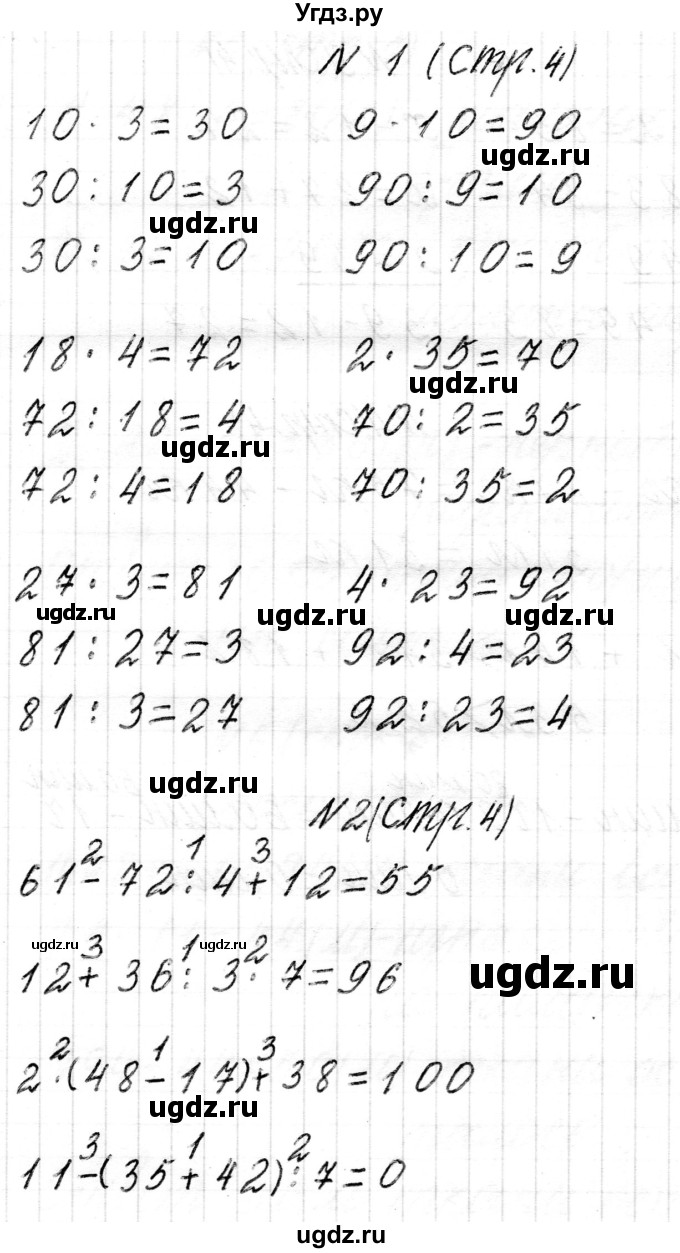 Угдз.ру
N 1 (стр. 4)
10 · 3 = 30 9 · 10 = 90
ugdz.ru
30 : 10 = 3 90 : 9 = 10
ugdz.ru
30 : 3 = 10 90 : 10 = 9
18 · 4 = 72 2 · 35 = 70
ugdz.ru
72 : 18 = 4 70 : 2 = 35
ugdz.ru
72 : 4 = 18 70 : 35 = 2
27 · 3 = 81 4 · 23 = 92
ugdz.ru ugdz.ru ugdz.ru
81 : 27 = 3 92 : 4 = 23
81 : 3 = 27 92 : 23 = 4
ugdz.ru
N 2 (стр. 4)
2 1 3
61 - 72 : 4 + 12 = 55
ugdz.ru ugdz.ru
3 1 2
12 + 36 : 3 · 7 = 96
ugdz.ru
2 1 3
2 · (48 - 17) + 38 = 100
ugdz.ru
3 1 2
11 - (35 + 42) : 7 = 0
ugdz.ru